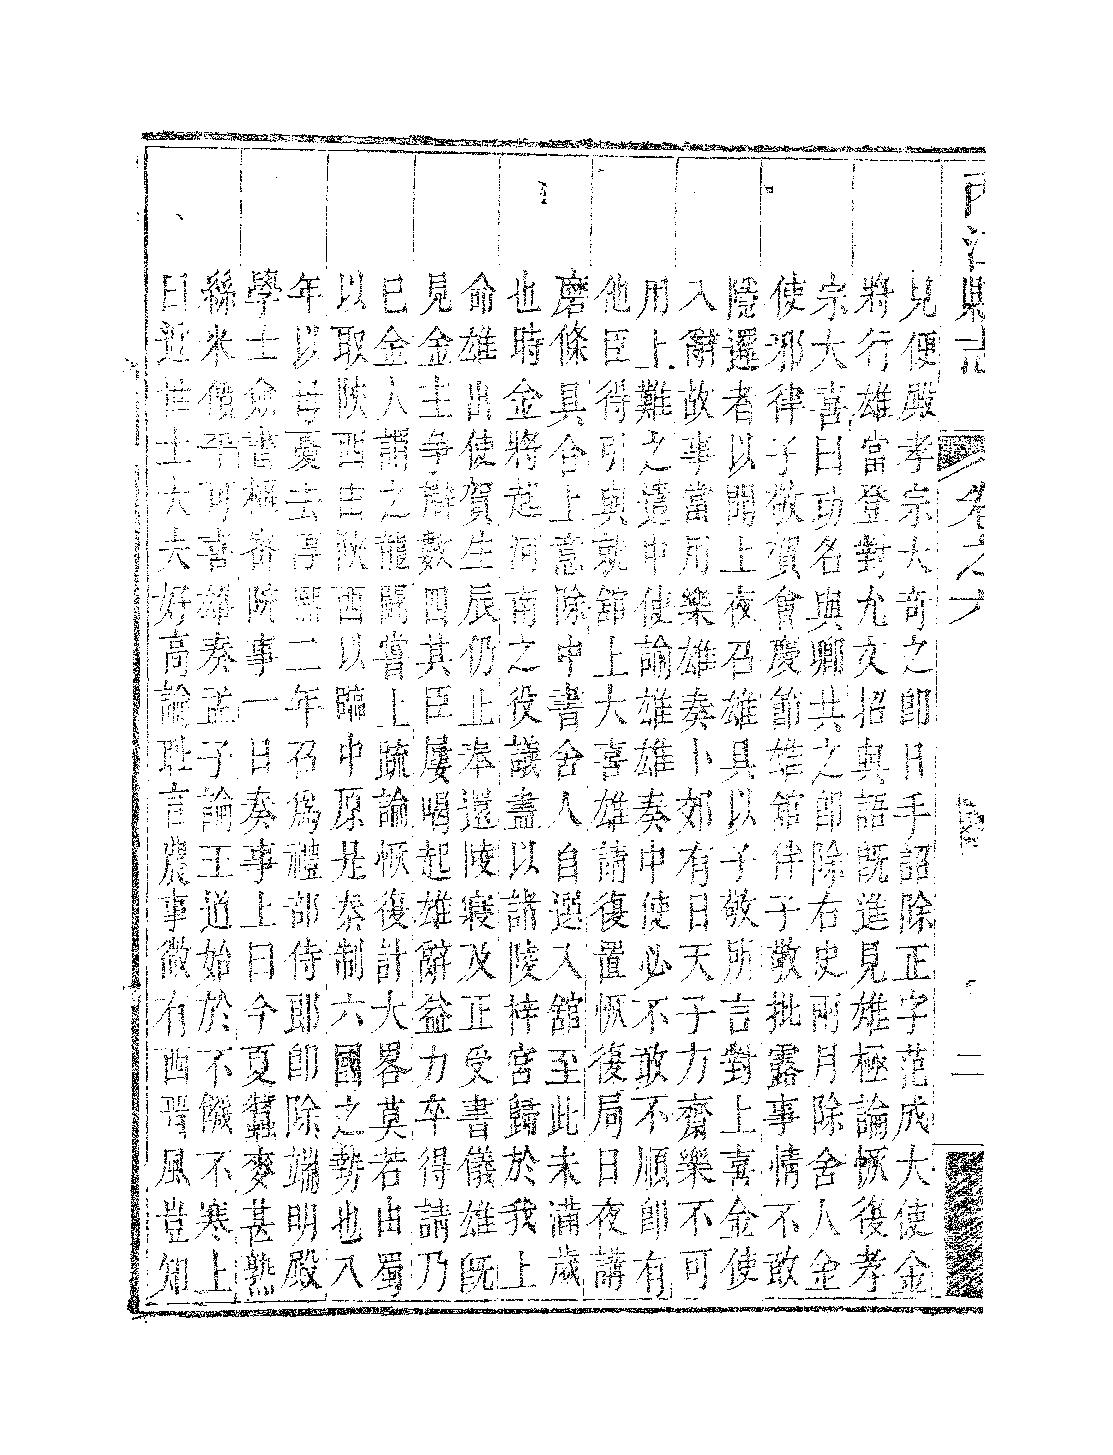 縣志
卷之六
二
見便殿孝宗大奇之即日手詔除正字范成大使金
將行雄當登對允文招與語既進見雄極論恢復孝
宗大喜曰功名與卿共之即除右史兩月除舍人金
使邪律子敬賀會慶節雄舘伴子敬批露事情不敢
隱邏者以聞上夜召雄具以子敬所言對上喜金使
入辭故事當用樂雄奏卜郊有日天子方齋樂不可
用上難之遣中使諭雄雄奏中使必不敢不順即有
他臣得引與就舘上大喜雄請復置恢復局日夜講
磨條具合上意除中書舍人自選入舘至此未滿歲
也時金將起河南之役議盡以諸陵梓宮歸於我上
命雄出使賀生辰仍止奉遷陵寢及正受書儀雄既
見金主爭辯數四其臣屢喝起雄辭益力卒得請乃
已金人謂之龍鬭嘗上疏論恢復計大畧莫若由蜀
以取陜西陜西以臨中原是秦制六國之勢也八
年以母憂去淳熙二年召爲禮部侍郎即除端明殿
學士僉書樞密院事一日奏事上曰今夏蠶麥甚熟
絲米價平可喜雄奏孟子論王道始於不饑不寒上
曰近世士大夫好高論耻言農事微有西晉風豈知